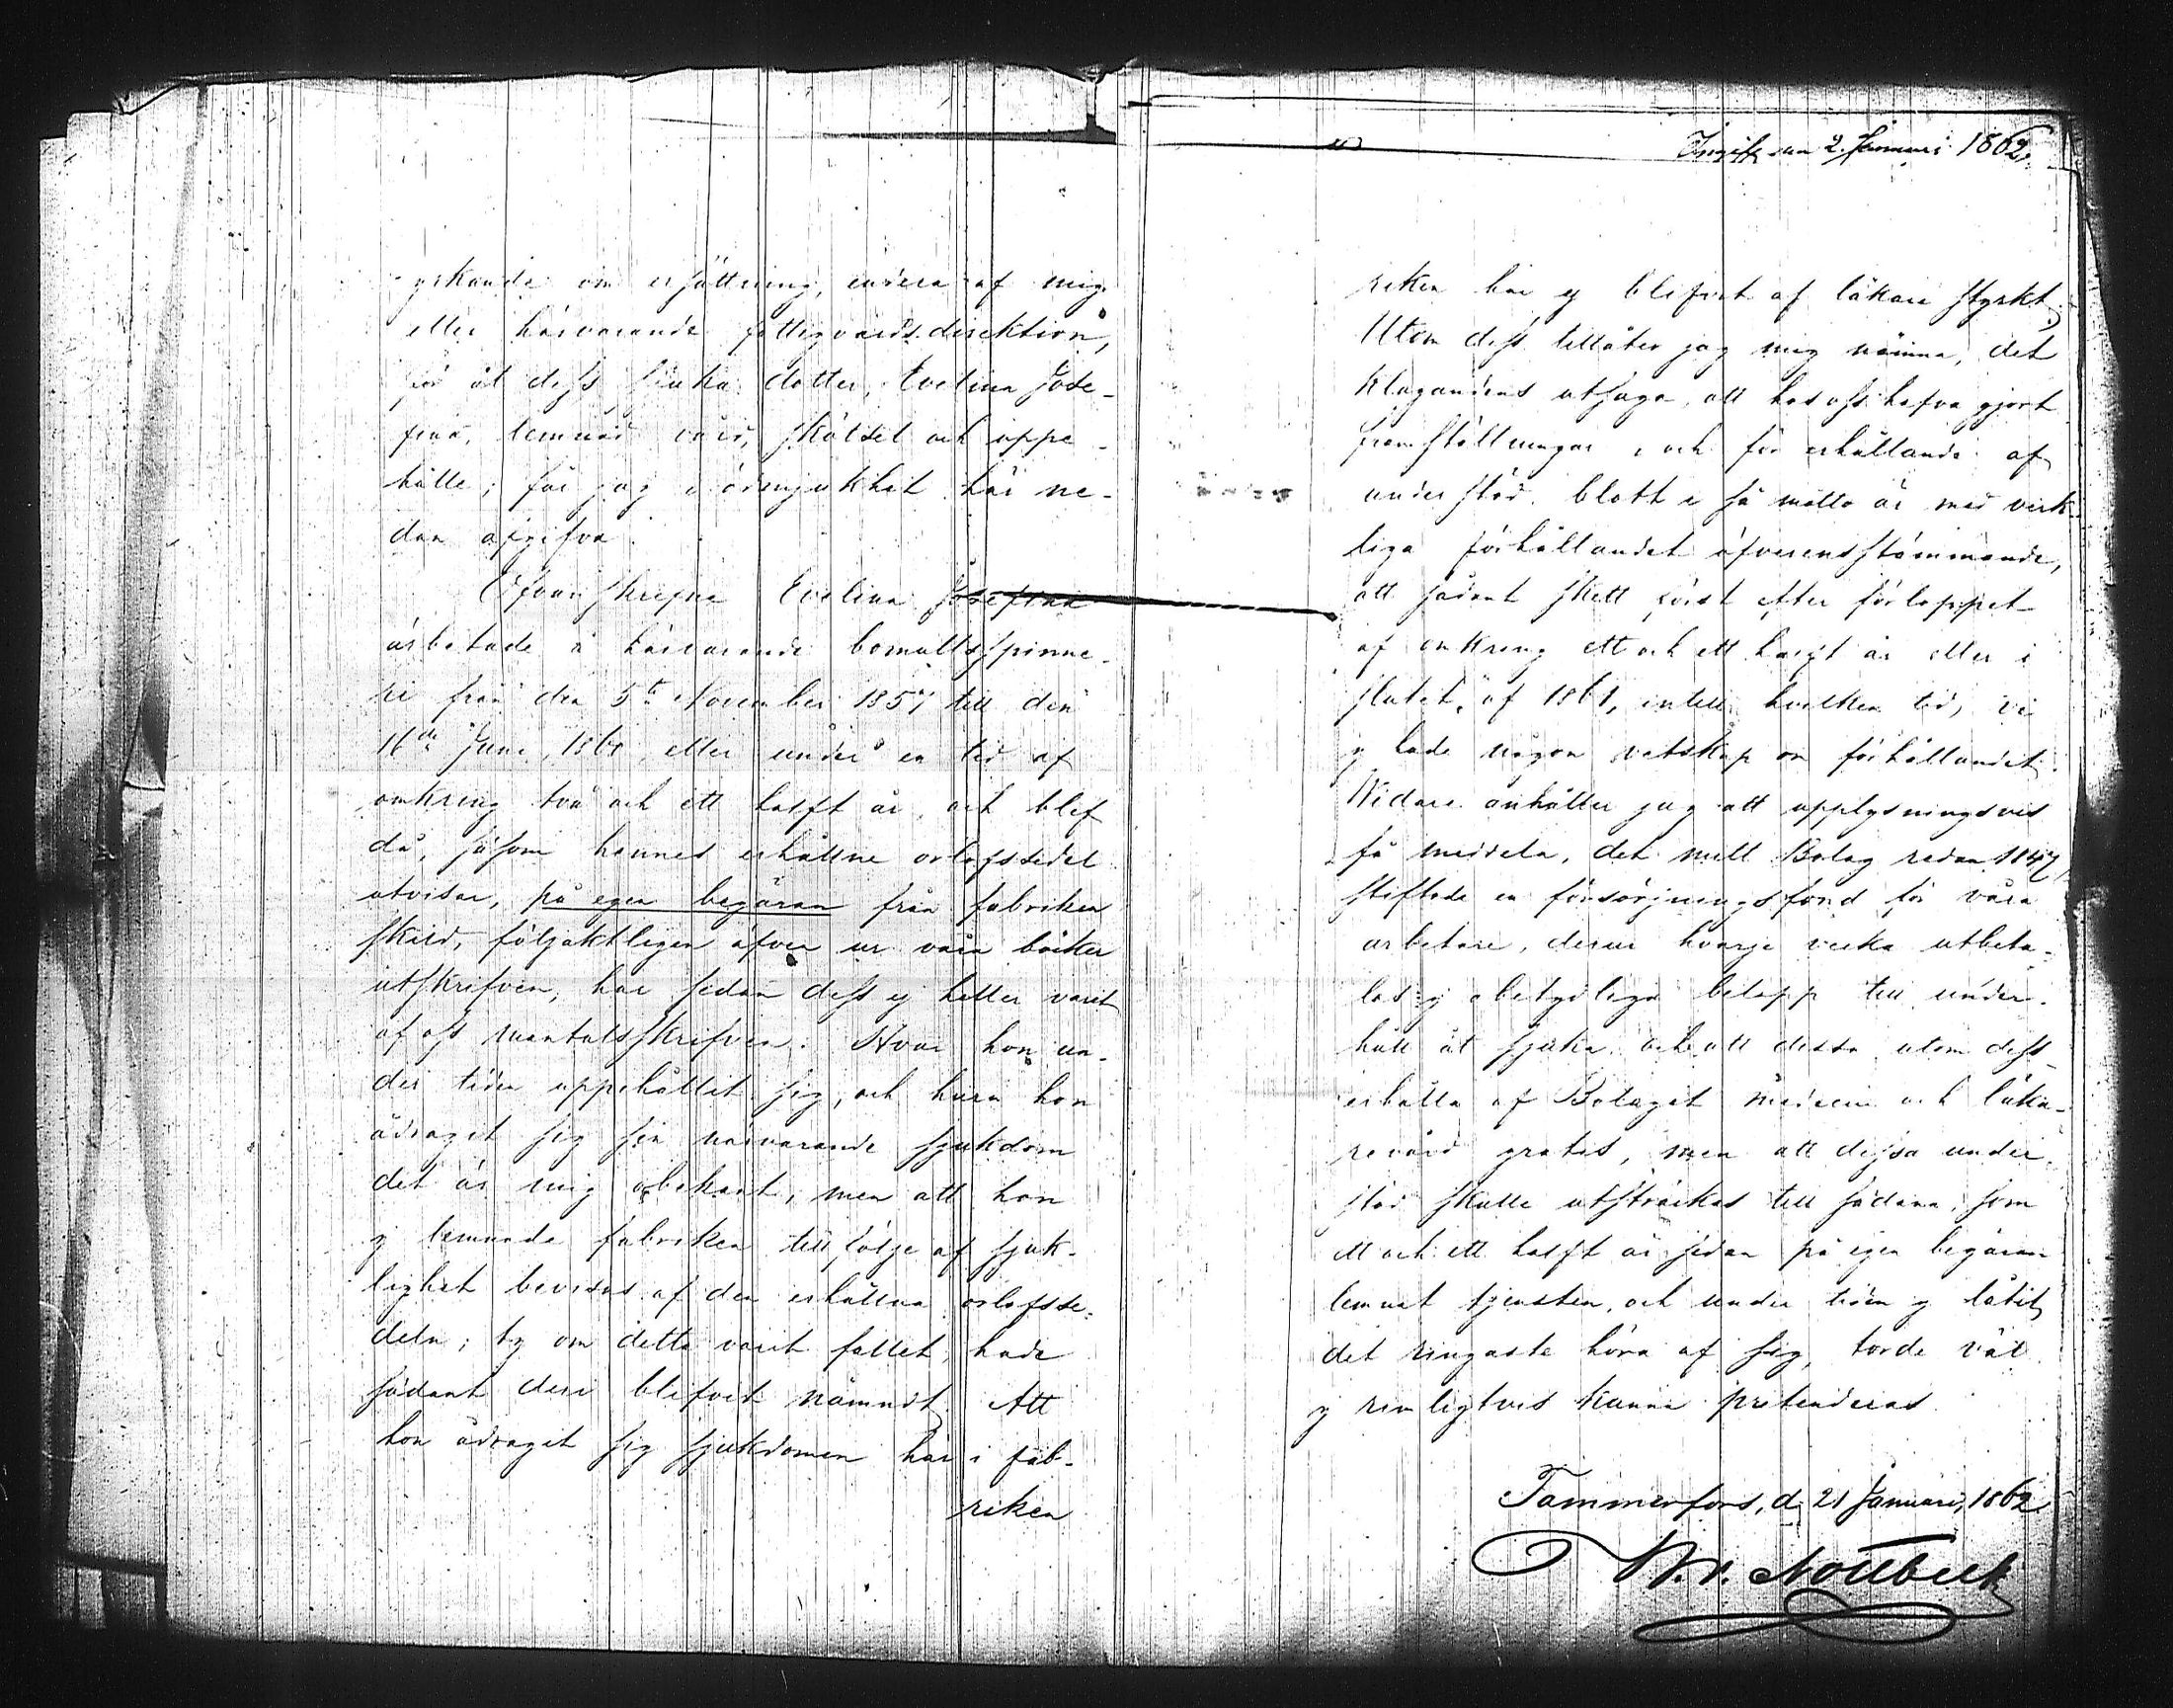 Ingift den 2 Januari 1862.
yrkande om ersättning, endera af mig
eller härvarande fattigvårds direktion,
för åt dess sjuka dotter, Evelina Jose-
fina, lemnad vård, skötsel och uppe-
hälle; får jag i ödmjukhet här ne-
dan afgifva.
Ofvanskrefne Evelina Josefina
arbetade i härvarande bomullsspinne-
ri från den 5te November 1857 till den
16de Juni, 1860, eller under en tid af
omkring två och ett halft år, och blef
då, såsom hennes erhållne orlofssedel
utvisar, på egen begäran från fabriken
skild, följaktligen äfven ur våra böcker
utskrifven, har sedan dess ej heller varit
af oss mantalsskrifven. Hvar hon un-
der tiden uppehållit sig, och huru hon
ådragit sig sin närvarande sjukdom
det är mig obekant, men att hon
ej lemnade fabriken till följe af sjuk-
lighet bevisas af den erhållna orlofsse-
deln; ty om detta varit fallet, hade
sådant deri blifvit nämndt. Att
hon ådragit sig sjukdomen här i fab-
riken
riken har ej blifvit af läkare styrkt.
Utom dess tillåter jag mig nämna, det
klagandens utsaga, att hos oss hafva gjort
framställningar, och för erhållande af
understöd, blott i så måtto är med verk-
liga förhållandet öfverensstämmande,
att sådant skett först efter förloppet
af omkring ett och ett halft år eller i
slutet af 1861, intill hvilken tid, vi
ej hade någon vetskap om förhållandet.
Widare anhåller jag att upplysningsvis
få meddela, det mitt Bolag redan 1847
stiftade en försörjningsfond för våra
arbetare, derur hvarje vecka utbeta-
las ej obetydliga belopp till under-
håll åt sjuka, och att dessa utom dess
erhålla af Bolaget medicin och läka-
revård gratis, men att dessa under-
stöd skulle utsträckas till sådana, som
ett och ett halft år sedan på egen begäran
lemnat tjensten, och under tiden ej låtit
det ringaste höra af sig, torde väl
ej rimligtvis kunna pretenderas.
Tammerfors, d. 21 Januari, 1862
W. v. Nottbeck